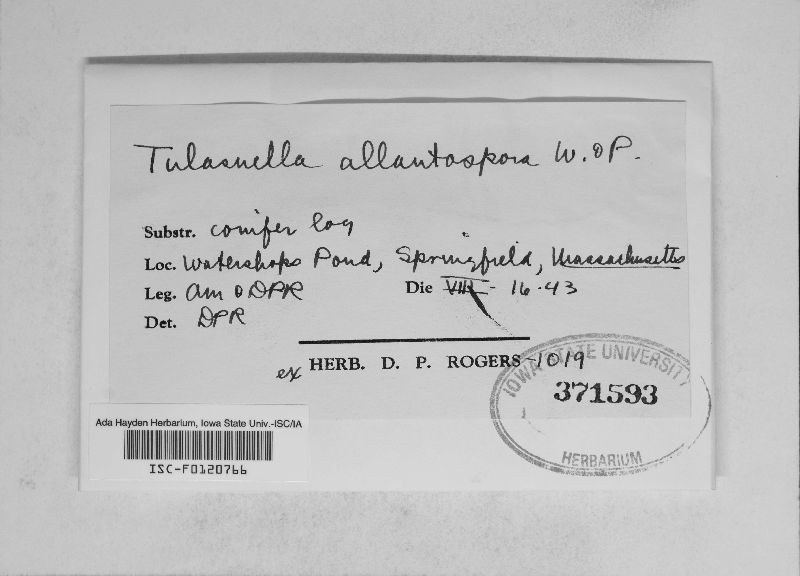 Tulasnella allantospora W. & P.
Substr. conifer log
Loc. Watershops Pond, Springfield, Massachusetts
Leg. AM & DPR Die VIII - 16-43
Det. DPR
ex HERB. D. P. ROGERS -1019
IOWA STATE UNIVERSITY
371593
HERBARIUM
Ada Hayden Herbarium, Iowa State Univ.-ISC/IA
ISC-F0120766